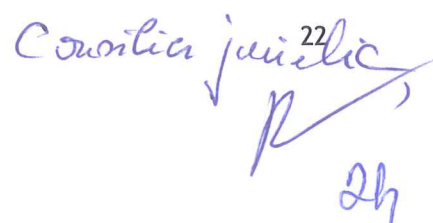 Consilier juridic,
22
24